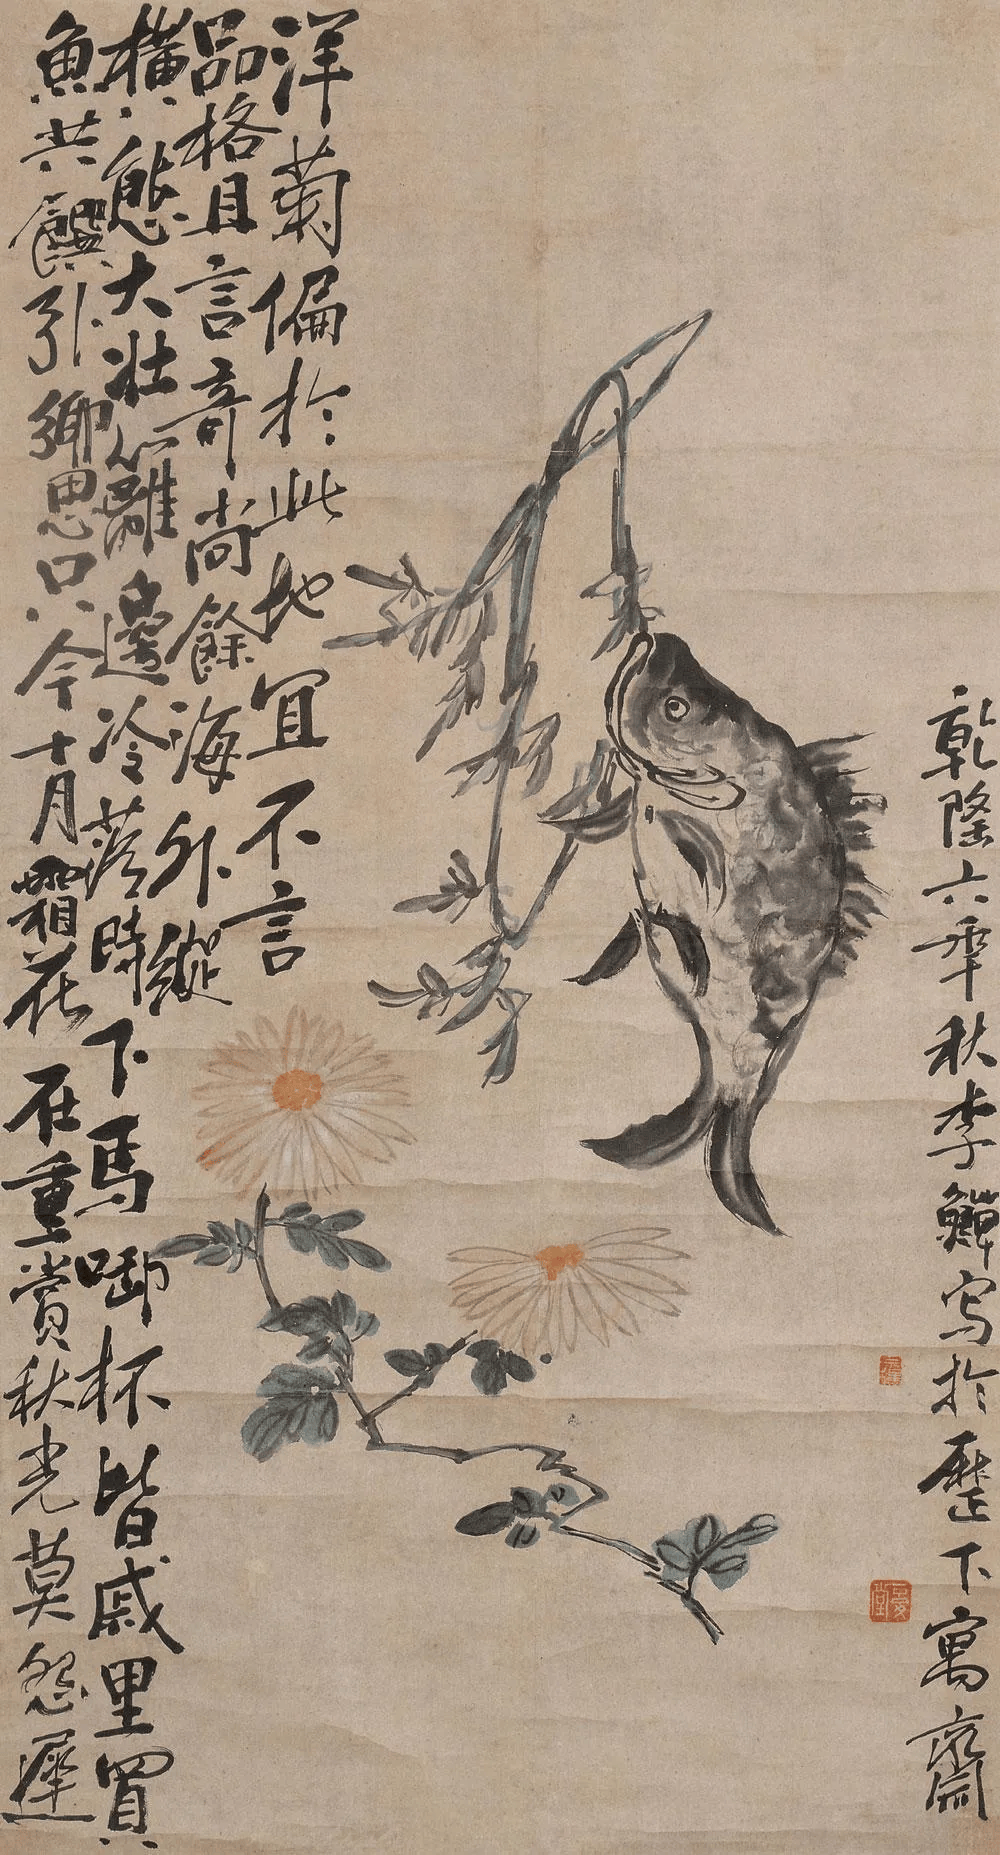 乾隆六年秋李鱓寫於歷下寓齋
洋菊偏於此地宜不言
品格且言奇尚餘海外縱
橫態大壯籬邊冷落時下馬啣杯皆戚里買
魚共饌引鄉思只今十月霜花在重賞秋光莫怨遲